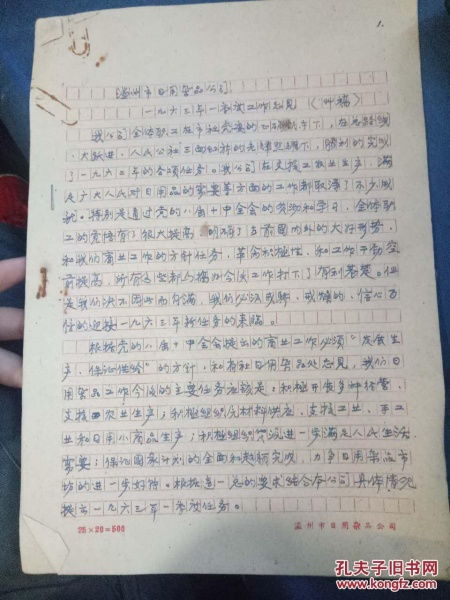 1.
温州市日用杂品公司
一九六三年一季度工作意见（草稿）
我公司全体职工在市社党委的正确领导下，在总路线
、大跃进、人民公社三面红旗的光辉照耀下，胜利的完成
了一九六二年的各项任务。我公司在支援工农业生产，满
足广大人民对日用品的需要等方面的工作都取得了不少成
就。特别是通过党的八届十中全会的传达和学习，全体职
工的觉悟有了很大提高，明确了当前国内外的大好形势，
和我们商业工作的方针任务，革命积极性，和工作干劲空
前提高，所有这些都为搞好今后工作打下了有利基础。但
是我们决不因此而自满，我们必须戒骄、戒躁的，信心百
倍的迎接一九六三年新任务的来临。
根据党的八届十中全会提出的商业工作必须“发展生
产，保证供给”的方针，和省社日用杂品处意见，我们日
用杂品工作今后的主要任务应该是：积极开展多种经营，
支援农业生产；积极组织原材料供应，支援工业、手工
业和日用小商品生产；积极组织货源进一步满足人民生活
需要；保证国家计划的全面和超额完成，力争日用杂品市
场的进一步好转。根据这一总的要求结合本公司具体情况
提出一九六三年一季度任务。
25×20=500
温州市日用杂品公司
孔夫子旧书网
www.kongfz.com